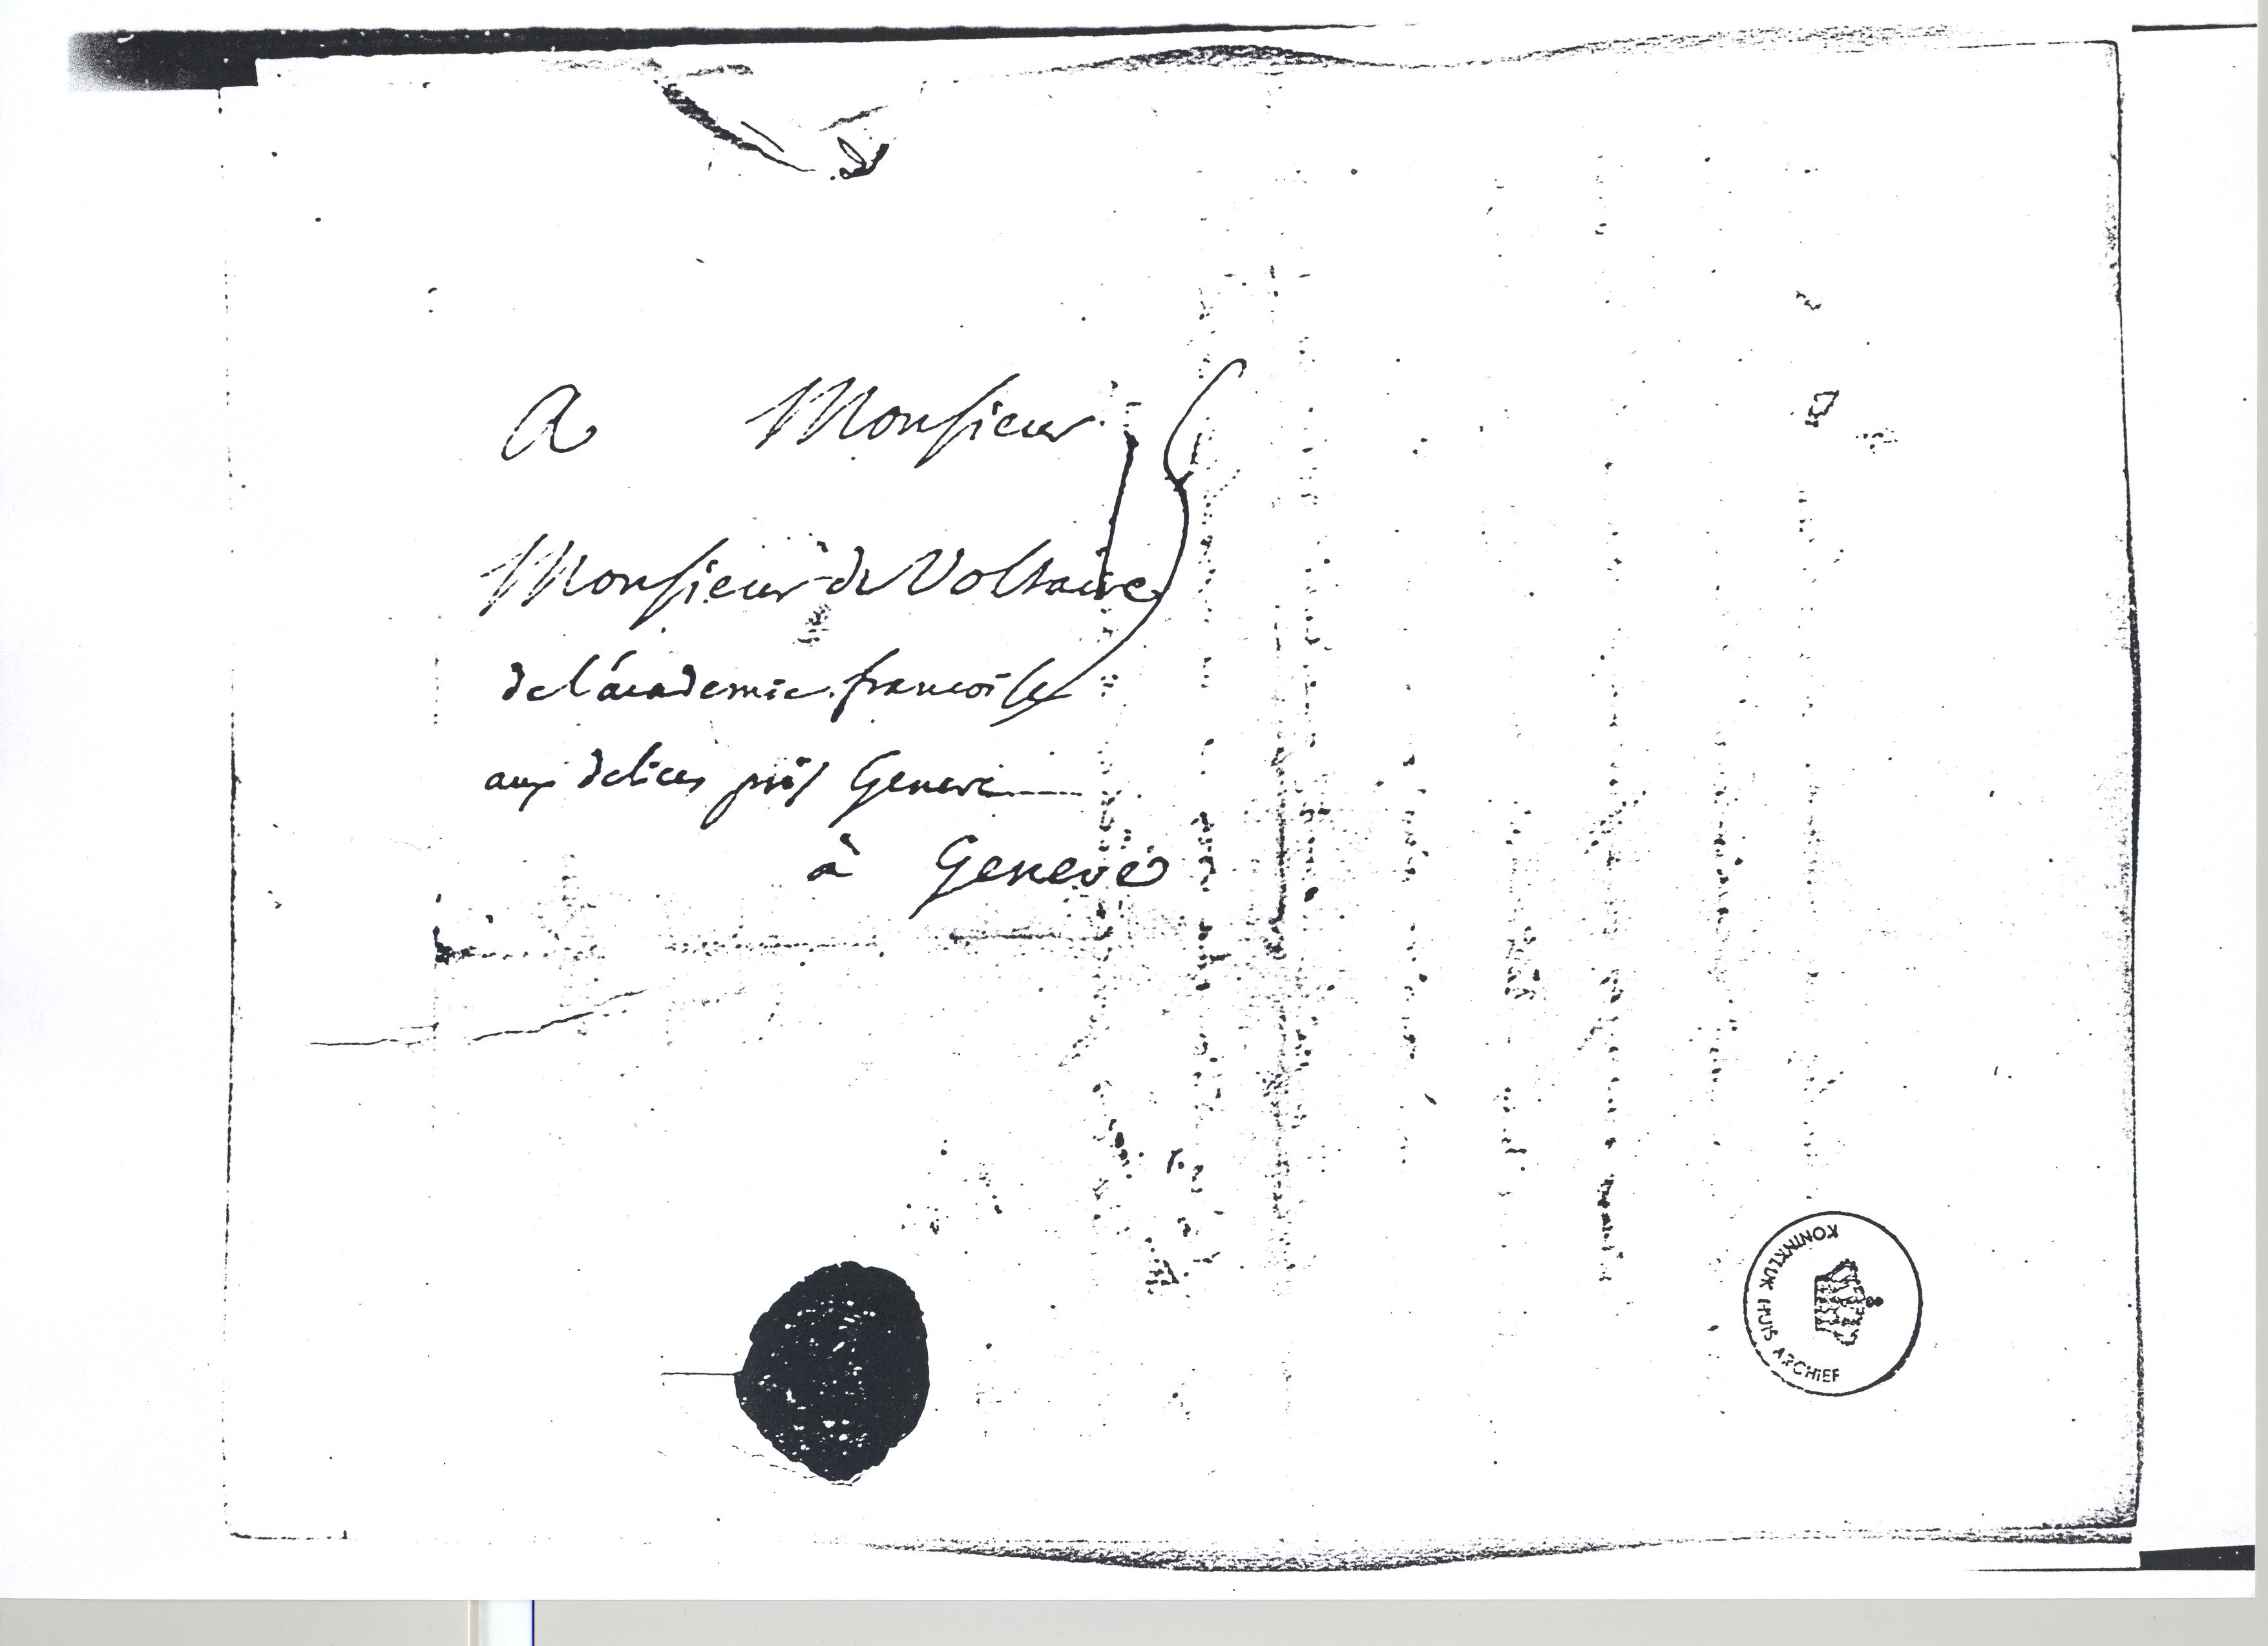 A Monsieur
Monsieur de Voltaire
de l'académie francoise
aux delices près Geneve
à Geneve
KONINKLIJK HUIS ARCHIEF